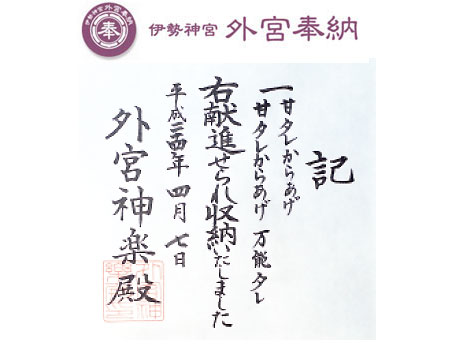 伊勢神宮外宮奉納
奉
伊勢神宮 外宮奉納
記
一 甘タレからあげ
甘タレからあげ 万能タレ
右献進せられ収納いたしました
平成二四年 四月 七日
外宮神楽殿